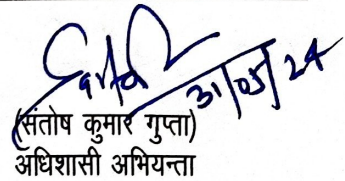 31/05/24
(संतोष कुमार गुप्ता)
अधिशासी अभियन्ता